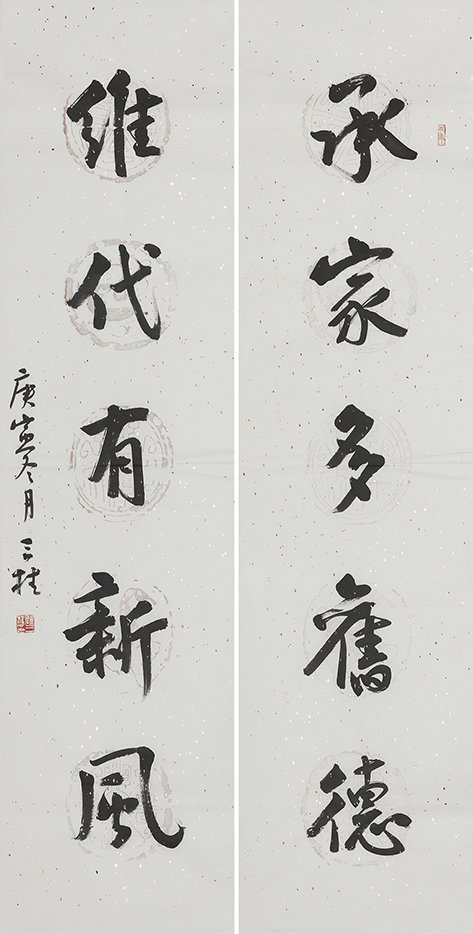 承家多舊德
維代有新風
庚寅冬月 三桂